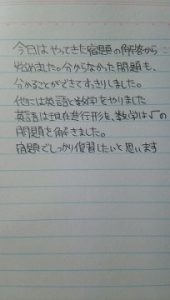 今日はやってきた宿題の解答から
始めました。分からなかった問題も、
分かることができてすっきりしました。
他には英語と数学をやりました
英語は現在進行形を、数学は√の
問題を解きました。
宿題でしっかり復習したいと思います